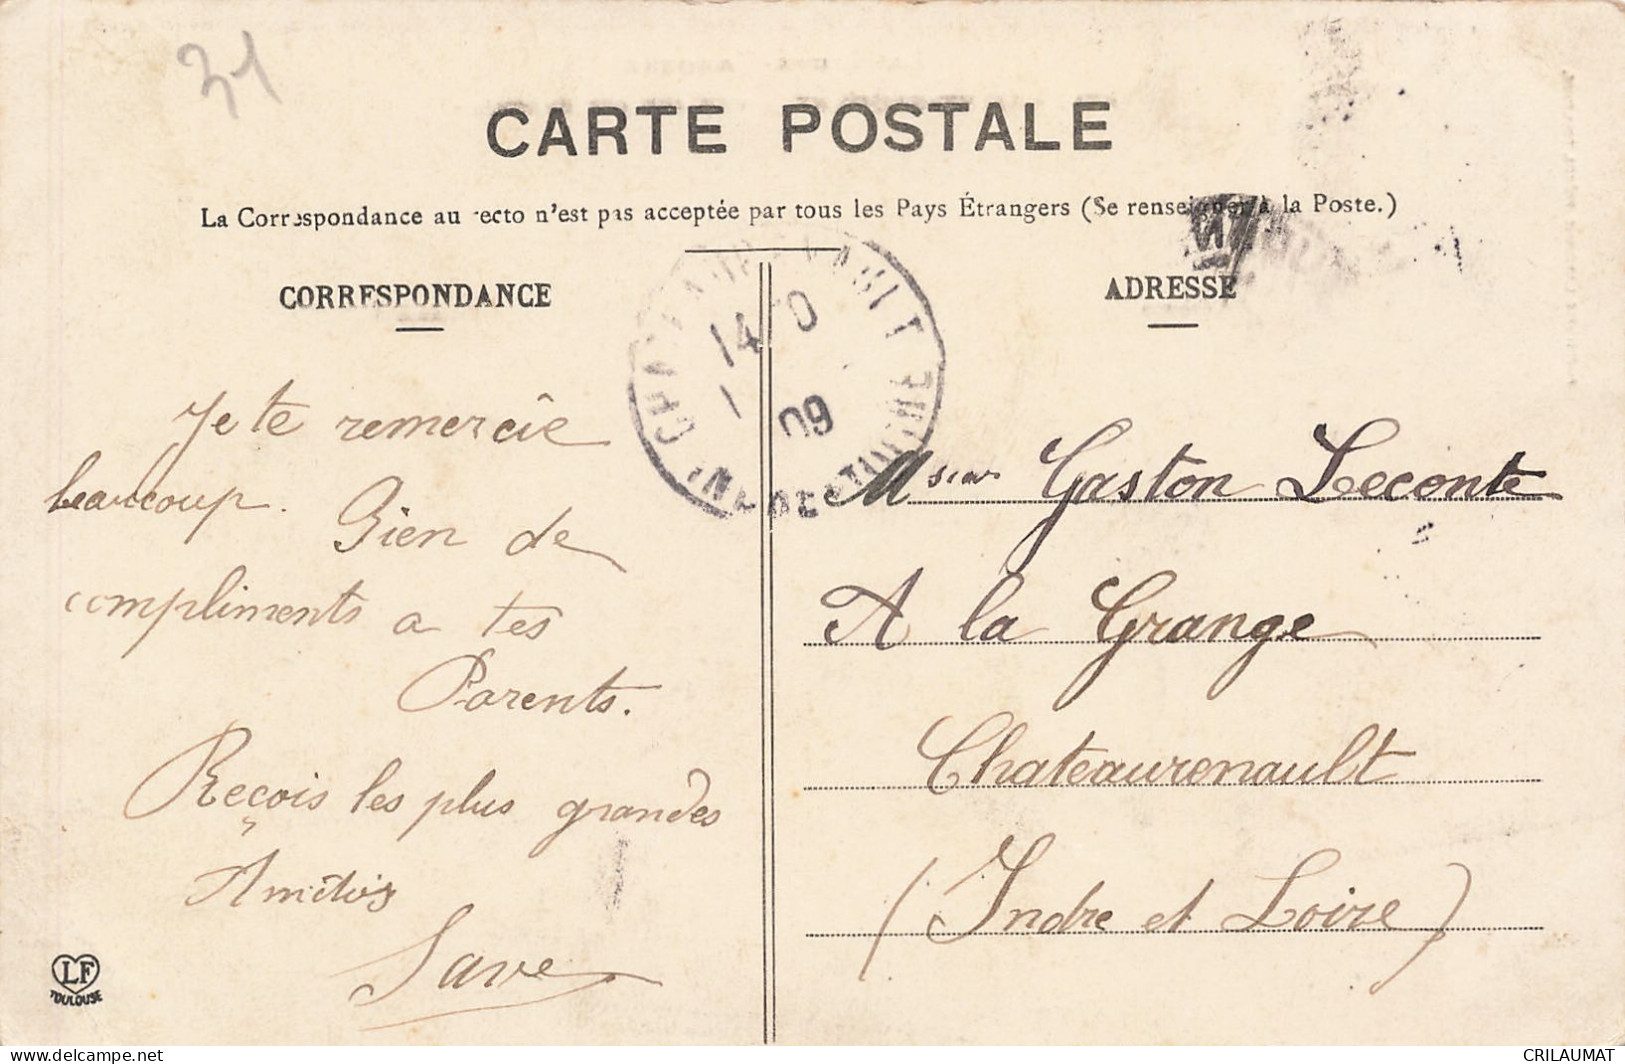 31
CARTE POSTALE
La Correspondance au recto n'est pas acceptée par tous les Pays Étrangers (Se renseigner à la Poste.)
CORRESPONDANCE
Je te remercie
beaucoup. Bien de
compliments a tes
Parents.
Reçois les plus grandes
Amitiés
LF
TOULOUSE
ADRESSE
Msieur Gaston Leconte
A la Grange
Chateaurenault
(Indre et Loire)
14
09
INDRE-ET-LOIRE
delcampe.net
CRILAUMAT